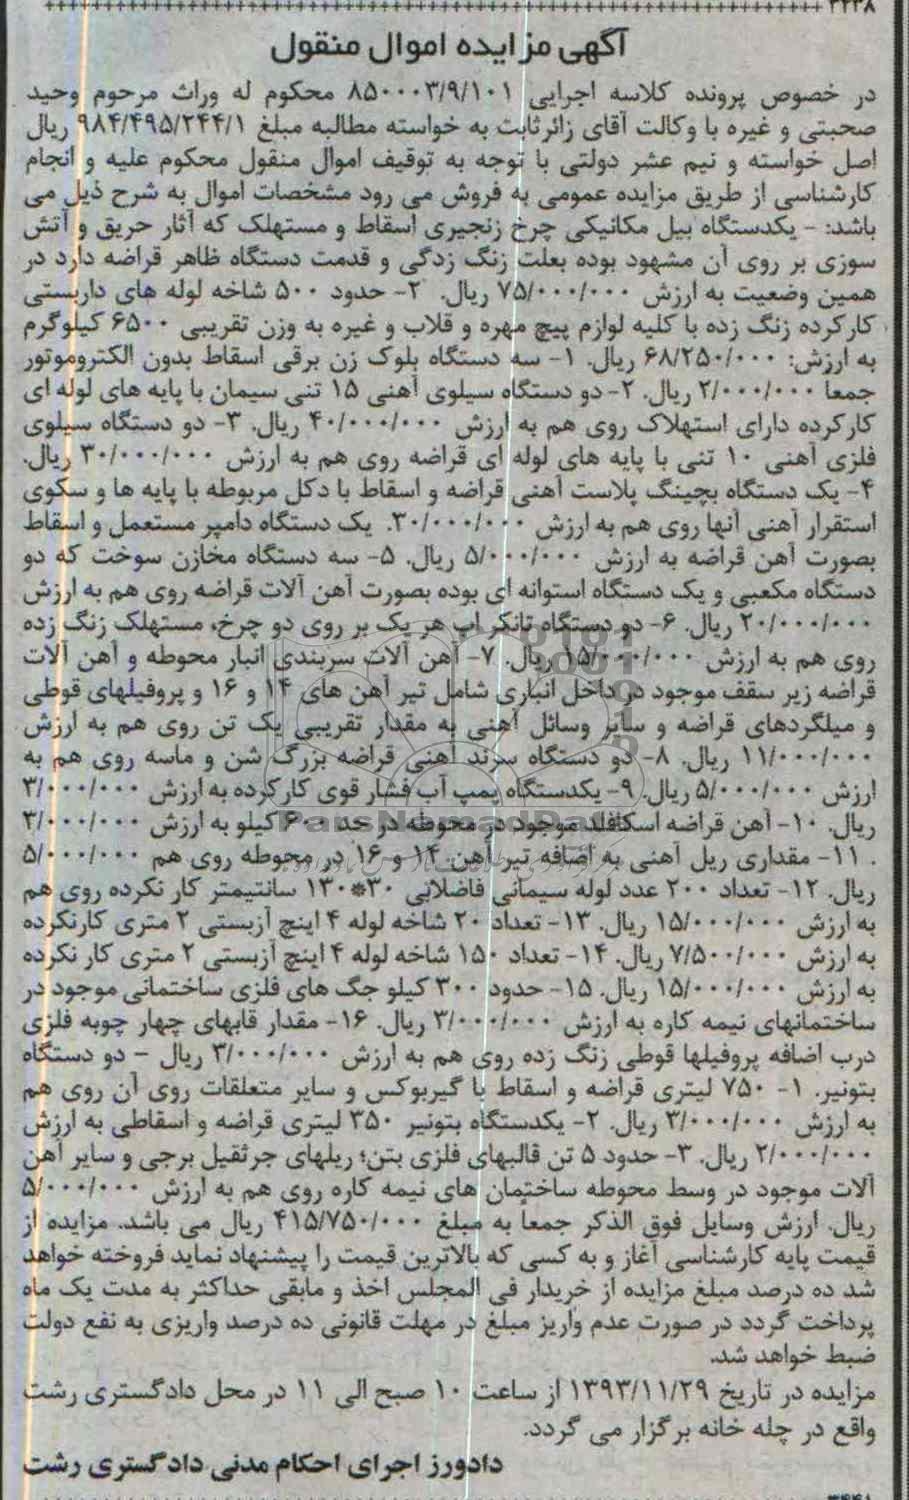 ۳۴۳۸
آگهی مزایده اموال منقول
در خصوص پرونده کلاسه اجرایی ۸۵۰۰۰۳/۹/۱۰۱ محکوم له وراث مرحوم وحید
صحبتی و غیره با وکالت آقای زائرثابت به خواسته مطالبه مبلغ ۹۸۴/۴۹۵/۲۴۴/۱ ریال
اصل خواسته و نیم عشر دولتی با توجه به توقیف اموال منقول محکوم علیه و انجام
کارشناسی از طریق مزایده عمومی به فروش می رود مشخصات اموال به شرح ذیل می
باشد: - یکدستگاه بیل مکانیکی چرخ زنجیری اسقاط و مستهلک که آثار حریق و آتش
سوزی بر روی آن مشهود بوده بعلت زنگ زدگی و قدمت دستگاه ظاهر قراضه دارد در
همین وضعیت به ارزش ۷۵/۰۰۰/۰۰۰ ریال. ۲- حدود ۵۰۰ شاخه لوله های داربستی
کارکرده زنگ زده با کلیه لوازم پیچ مهره و قلاب و غیره به وزن تقریبی ۶۵۰۰ کیلوگرم
به ارزش: ۶۸/۲۵۰/۰۰۰ ریال. ۱- سه دستگاه بلوک زن برقی اسقاط بدون الکتروموتور
جمعا ۲/۰۰۰/۰۰۰ ریال. ۲- دو دستگاه سیلوی آهنی ۱۵ تنی سیمان با پایه های لوله ای
کارکرده دارای استهلاک روی هم به ارزش ۴۰/۰۰۰/۰۰۰ ریال. ۳- دو دستگاه سیلوی
فلزی آهنی ۱۰ تنی با پایه های لوله ای قراضه روی هم به ارزش ۳۰/۰۰۰/۰۰۰ ریال.
۴- یک دستگاه بچینگ پلاست آهنی قراضه و اسقاط با دکل مربوطه با پایه ها و سکوی
استقرار آهنی آنها روی هم به ارزش ۳۰/۰۰۰/۰۰۰. یک دستگاه دامپر مستعمل و اسقاط
بصورت آهن قراضه به ارزش ۵/۰۰۰/۰۰۰ ریال. ۵- سه دستگاه مخازن سوخت که دو
دستگاه مکعبی و یک دستگاه استوانه ای بوده بصورت آهن آلات قراضه روی هم به ارزش
۲۰/۰۰۰/۰۰۰ ریال. ۶- دو دستگاه تانکر اب هر یک بر روی دو چرخ، مستهلک زنگ زده
روی هم به ارزش ۱۵/۰۰۰/۰۰۰ ریال. ۷- آهن آلات سربندی انبار محوطه و آهن آلات
قراضه زیر سقف موجود در داخل انباری شامل تیر آهن های ۱۴ و ۱۶ و پروفیلهای قوطی
و میلگردهای قراضه و سایر وسائل آهنی به مقدار تقریبی یک تن روی هم به ارزش
۱۱/۰۰۰/۰۰۰ ریال. ۸- دو دستگاه سرند آهنی قراضه بزرگ شن و ماسه روی هم به
ارزش ۵/۰۰۰/۰۰۰ ریال. ۹- یکدستگاه پمپ آب فشار قوی کارکرده به ارزش ۳/۰۰۰/۰۰۰
ریال. ۱۰- آهن قراضه اسکافلد موجود در محوطه در حد ۶۰۰ کیلو به ارزش ۳/۰۰۰/۰۰۰
. ۱۱- مقداری ریل آهنی به اضافه تیر آهن ۱۴ و ۱۶ در محوطه روی هم ۵/۰۰۰/۰۰۰
ریال. ۱۲- تعداد ۲۰۰ عدد لوله سیمانی فاضلابی ۳۰*۱۳۰ سانتیمتر کار نکرده روی هم
به ارزش ۱۵/۰۰۰/۰۰۰ ریال. ۱۳- تعداد ۲۰ شاخه لوله ۴ اینچ آزبستی ۲ متری کارنکرده
به ارزش ۷/۵۰۰/۰۰۰ ریال. ۱۴- تعداد ۱۵۰ شاخه لوله ۴ اینچ آزبستی ۲ متری کار نکرده
به ارزش ۱۵/۰۰۰/۰۰۰ ریال. ۱۵- حدود ۳۰۰ کیلو جگ های فلزی ساختمانی موجود در
ساختمانهای نیمه کاره به ارزش ۳/۰۰۰/۰۰۰ ریال. ۱۶- مقدار قابهای چهار چوبه فلزی
درب اضافه پروفیلها قوطی زنگ زده روی هم به ارزش ۳/۰۰۰/۰۰۰ ریال - دو دستگاه
بتونیر. ۱- ۷۵۰ لیتری قراضه و اسقاط با گیربوکس و سایر متعلقات روی آن روی هم
به ارزش ۳/۰۰۰/۰۰۰ ریال. ۲- یکدستگاه بتونیر ۳۵۰ لیتری قراضه و اسقاطی به ارزش
۲/۰۰۰/۰۰۰ ریال. ۳- حدود ۵ تن قالبهای فلزی بتن؛ ریلهای جرثقیل برجی و سایر آهن
آلات موجود در وسط محوطه ساختمان های نیمه کاره روی هم به ارزش ۵/۰۰۰/۰۰۰
ریال. ارزش وسایل فوق الذکر جمعا به مبلغ ۴۱۵/۷۵۰/۰۰۰ ریال می باشد. مزایده از
قیمت پایه کارشناسی آغاز و به کسی که بالاترین قیمت را پیشنهاد نماید فروخته خواهد
شد ده درصد مبلغ مزایده از خریدار فی المجلس اخذ و مابقی حداکثر به مدت یک ماه
پرداخت گردد در صورت عدم واریز مبلغ در مهلت قانونی ده درصد واریزی به نفع دولت
ضبط خواهد شد.
مزایده در تاریخ ۱۳۹۳/۱۱/۲۹ از ساعت ۱۰ صبح الی ۱۱ در محل دادگستری رشت
واقع در چله خانه برگزار می گردد.
دادورز اجرای احکام مدنی دادگستری رشت